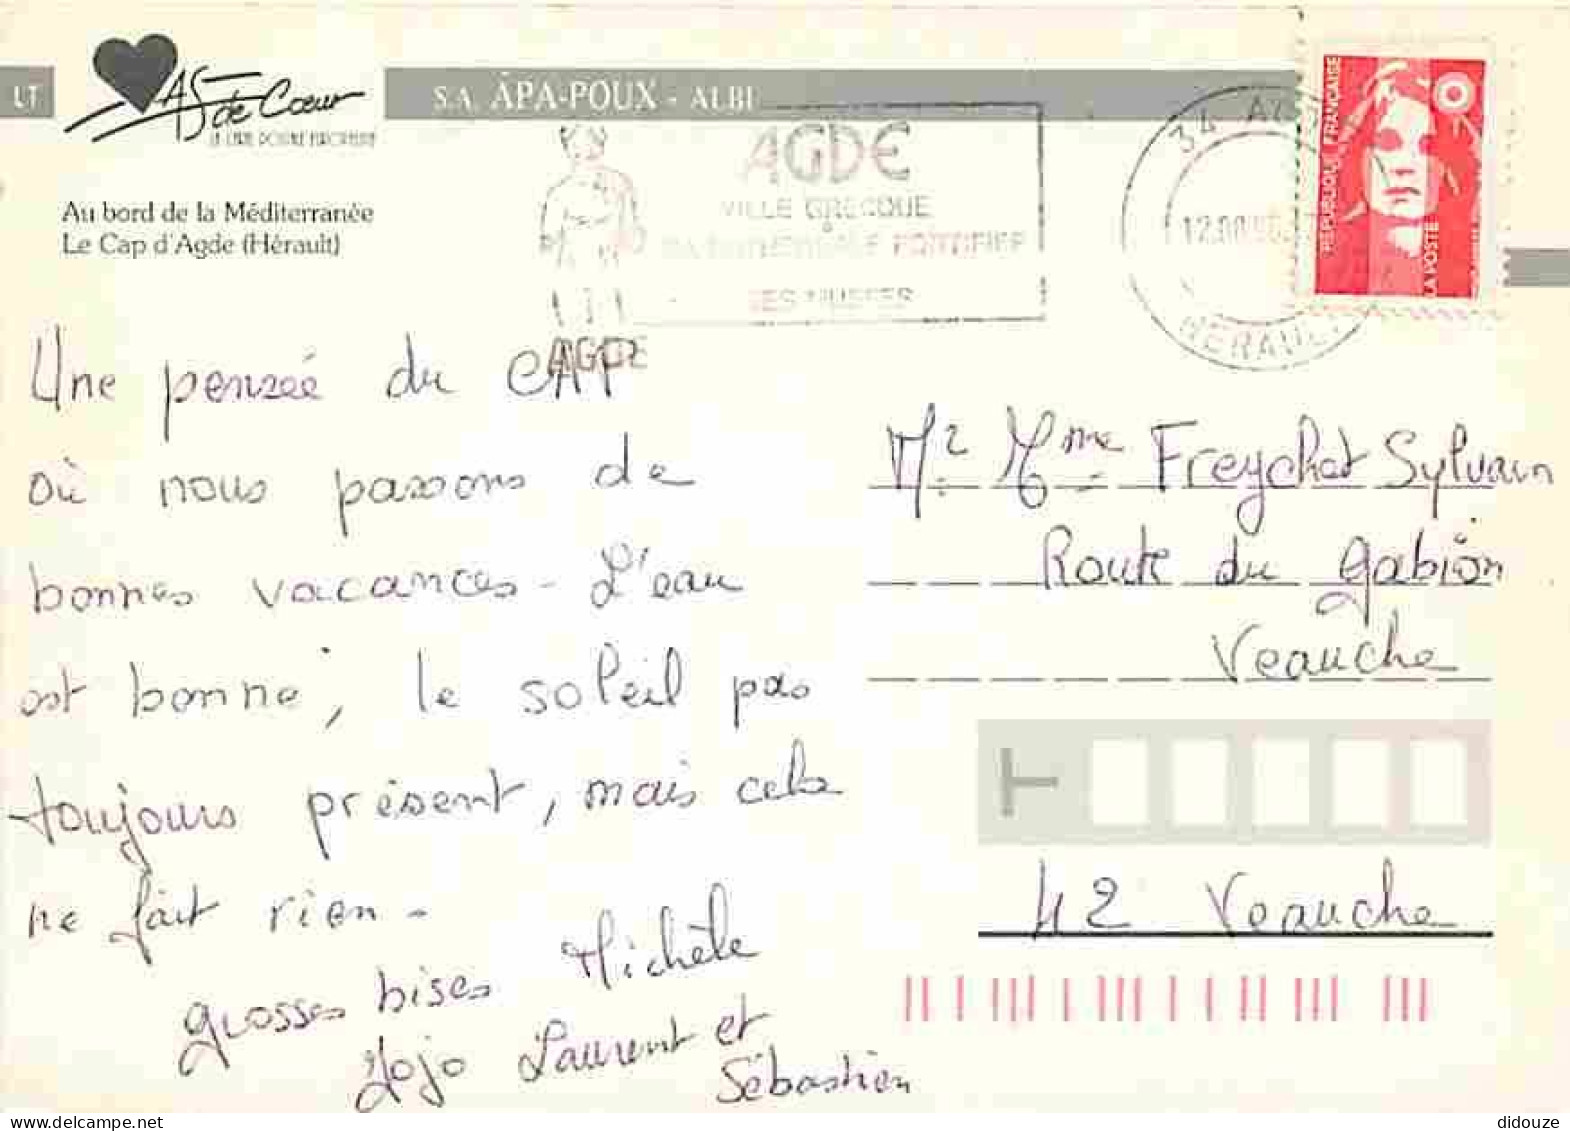 LT
As de Coeur
S.A. ÂPA-POUX - ALBI
Au bord de la Méditerranée
Le Cap d'Agde (Hérault)
AGDE
VILLE GRECQUE
LES MUSEES
AGDE
34 AGDE
HERAULT
REPUBLIQUE FRANÇAISE
LA POSTE
Une pensée du CAP
où nous passons de
bonnes vacances - L'eau
est bonne, le soleil pas
toujours présent, mais cela
ne fait rien -
grosses bises Michèle
Jojo Laurent et
Sébastien
Mr. Mme Freychet Sylvain
Route du Gabion
Veauche
42 Veauche
didouze